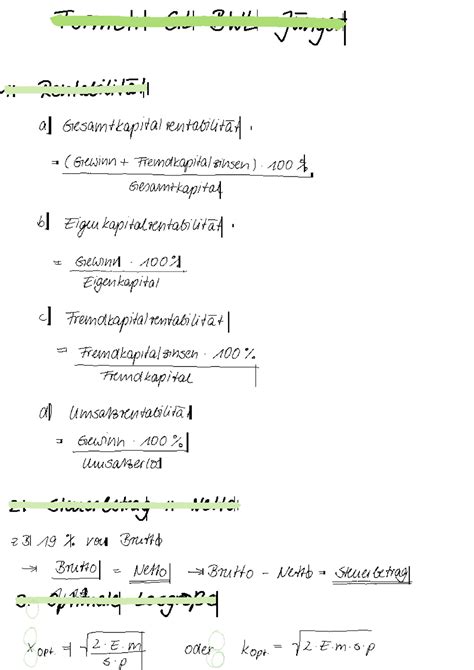 Formeln GL BWL Jünger
1. Rentabilität
a) Gesamtkapitalrentabilität
= (Gewinn + Fremdkapitalzinsen) · 100 %
Gesamtkapital
b) Eigenkapitalrentabilität
= Gewinn · 100 %
Eigenkapital
c) Fremdkapitalrentabilität
= Fremdkapitalzinsen · 100 %
Fremdkapital
d) Umsatzrentabilität
= Gewinn · 100 %
Umsatzerlös
2. Steuerbetrag Netto
z B 19 % von Brutto
→ Brutto = Netto → Brutto - Netto = Steuerbetrag
1,19
3. Optimale Losgröße
x opt. = √ 2·E·m oder k opt. = √ 2·E·m·s·p
s·p